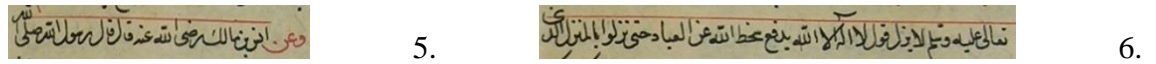 وعن انس بن مالك رضى الله عنه قال قال رسول الله صلى الله
5.
تعالى عليه وسلم لا يزل قول لا اله الا الله يدفع سخط الله عن العباد حتى نزلوا بالمنزل الذى
6.